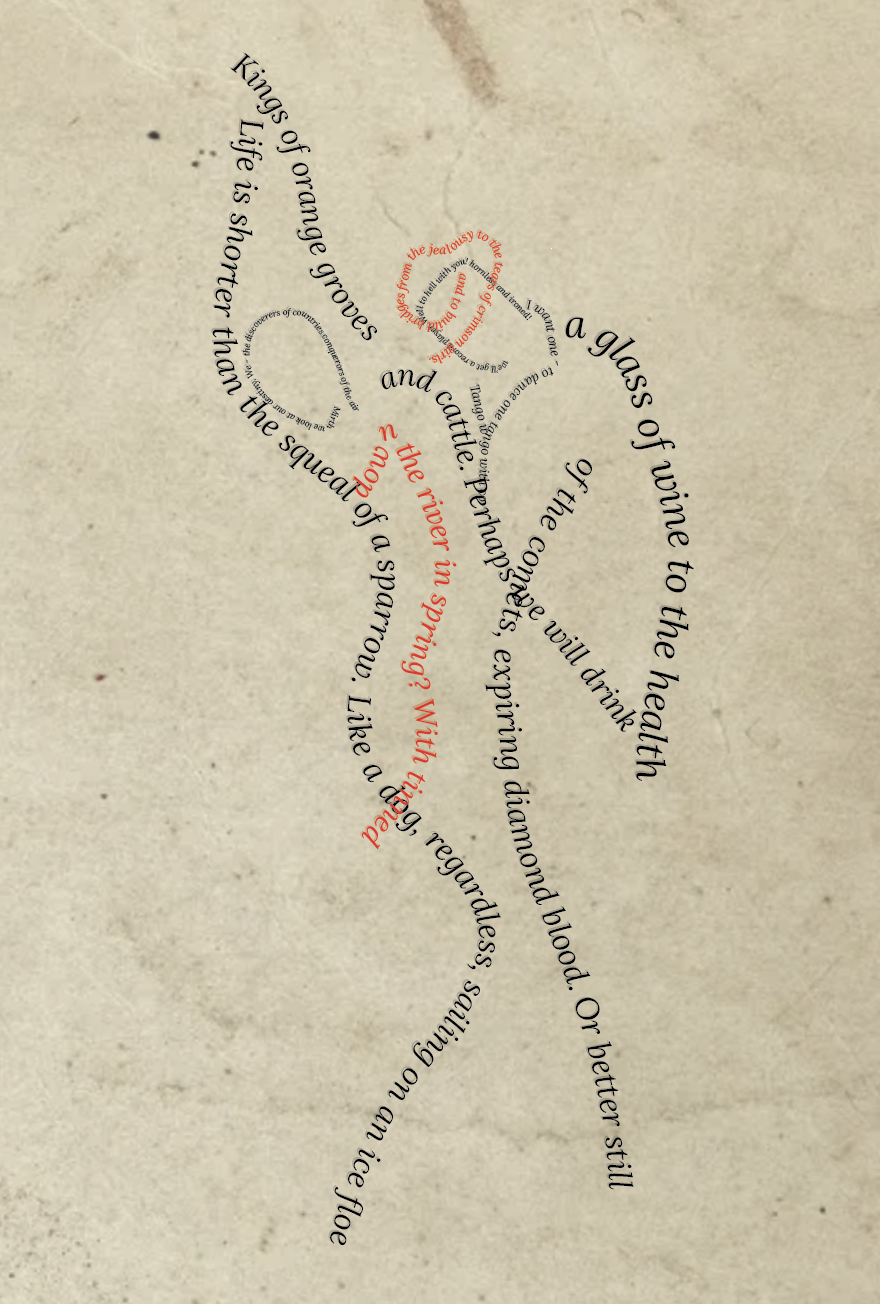 Kings of orange groves
and cattle. Perhaps we will drink
a glass of wine to the health
of the cornets, expiring diamond blood. Or better still
Life is shorter than the squeal of a sparrow. Like a dog, regardless, sailing on an ice floe
down the river in spring? With tinned
Mirth
we look at our destiny. We - the discoverers of countries conquerors of the air
and to build bridges from the jealousy to the tears of crimson girls.
we'll get a
to hell with you! hornless and ironed!
I want one - to dance one tango with
Tango